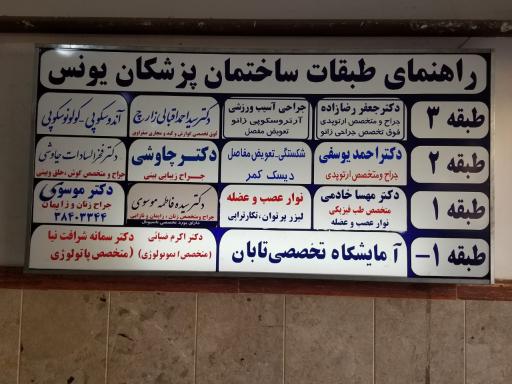 راهنمای طبقات ساختمان پزشکان یونس
طبقه ۳
دکتر جعفر رضازاده
جراح و متخصص ارتوپدی
فوق تخصص جراحی زانو
جراحی آسیب ورزشی
آرتروسکوپی زانو
تعویض مفصل
دکتر سید احمد اقبالی زارچ
فوق تخصص گوارش و کبد و مجاری صفراوی
آندوسکوپی - کولونوسکوپی
طبقه ۲
دکتر احمد یوسفی
جراح و متخصص ارتوپدی
شکستگی - تعویض مفاصل
دیسک کمر
دکتر چاوشی
جراح زیبایی بینی
دکتر فخرالسادات چاوشی
جراح و متخصص گوش، حلق و بینی
طبقه ۱
دکتر مهسا خادمی
متخصص طب فیزیکی
نوار عصب و عضله
نوار عصب و عضله
لیزر پرتوان، تکارتراپی
دکتر سیده فاطمه موسوی
جراح و متخصص زنان، زایمان و نازایی
دکتر موسوی
جراح زنان و زایمان
۳۸۴۰۳۳۴۴
طبقه ۱-
آزمایشگاه تخصصی تابان
دکتر اکرم ضیائی
(متخصص ایمونولوژی)
دکتر سمانه شرافت نیا
(متخصص پاتولوژی)